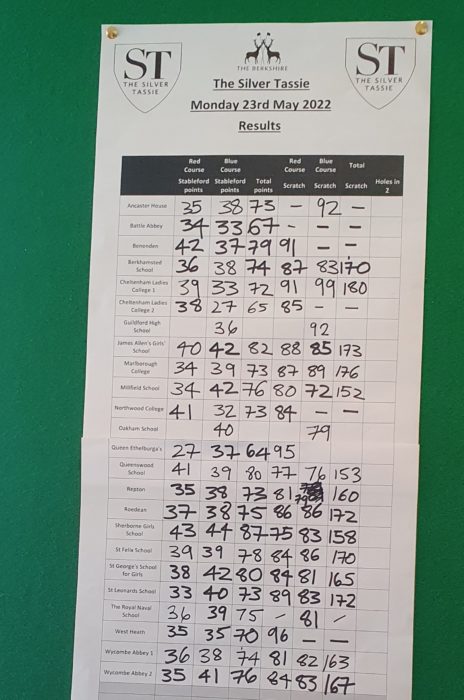 ST
THE SILVER
TASSIE
THE BERKSHIRE
ST
THE SILVER
TASSIE
The Silver Tassie
Monday 23rd May 2022
Results
Red Course Stableford points Blue Course Stableford points Total points Red Course Scratch Blue Course Scratch Total Scratch Holes in 2
Ancaster House 35 38 73 – 92 –
Battle Abbey 34 33 67 – – –
Benenden 42 37 79 91 – –
Berkhamsted School 36 38 74 87 83 170
Cheltenham Ladies College 1 39 33 72 91 99 180
Cheltenham Ladies College 2 38 27 65 85 – –
Guildford High School 36 92
James Allen's Girls' School 40 42 82 88 85 173
Marlborough College 34 39 73 87 89 176
Millfield School 34 42 76 80 72 152
Northwood College 41 32 73 84 – –
Oakham School 40 79
Queen Ethelburga's 27 37 64 95
Queenswood School 41 39 80 77 76 153
Repton 35 38 73 81 79 160
Roedean 37 38 75 86 86 172
Sherborne Girls School 43 44 87 75 83 158
St Felix School 39 39 78 84 86 170
St George's School for Girls 38 42 80 84 81 165
St Leonards School 33 40 73 89 83 172
The Royal Naval School 36 39 75 – 81 –
West Heath 35 35 70 96 – –
Wycombe Abbey 1 36 38 74 81 82 163
Wycombe Abbey 2 35 41 76 84 83 167